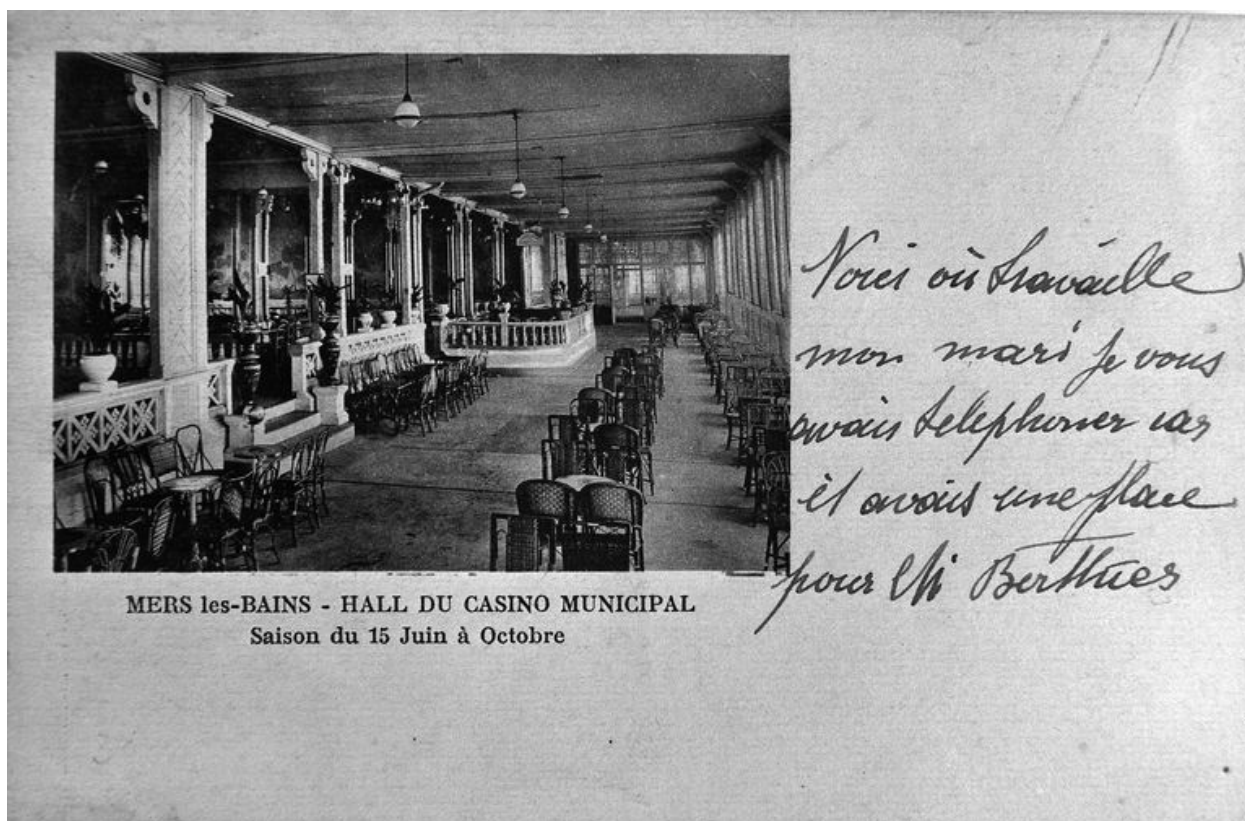 MERS les-BAINS - HALL DU CASINO MUNICIPAL
Saison du 15 Juin à Octobre
Voici où travaille
mon mari je vous
avais telephoner car
il avais une place
pour Mr